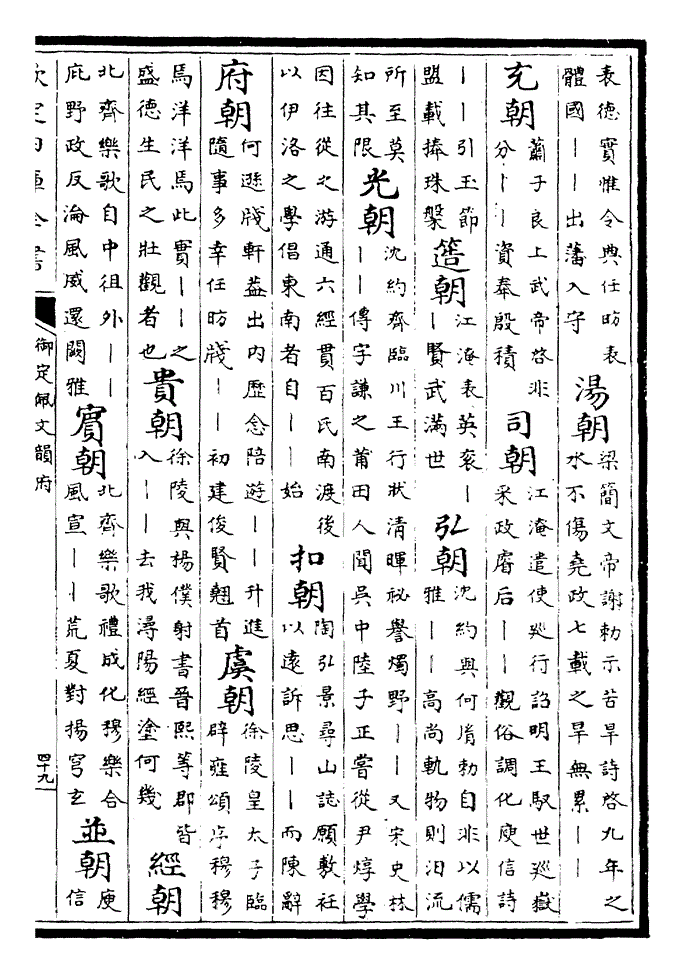 表德實惟令典任昉表
體國丨丨出藩入守
湯朝
梁簡文帝謝勅示苦旱詩啓九年之
水不傷堯政七載之旱無累丨丨
充朝
蕭子良上武帝啓非
分丨丨資奉殷積
司朝
江淹遣使巡行詔明王馭世巡嶽
采政睿后丨丨觀俗調化庾信詩
丨丨引玉節
盟載捧珠槃
簉朝
江淹表英衮丨
丨賢武滿世
弘朝
沈約與何胤勅自非以儒
雅丨丨高尚軌物則汨流
所至莫
知其限
光朝
沈約齊臨川王行狀清暉祕譽燭野丨丨又宋史林
丨丨傳字謙之莆田人聞吳中陸子正嘗從尹焞學
因往從之游通六經貫百氏南渡後
以伊洛之學倡東南者自丨丨始
扣朝
陶弘景尋山誌願敷衽
以遠訴思丨丨而陳辭
府朝
何遜牋軒蓋出内歷念陪遊丨丨升進
隨事多幸任昉牋丨丨初建俊賢翹首
虞朝
徐陵皇太子臨
辟雍頌序穆穆
焉洋洋焉此實丨丨之
盛德生民之壯觀者也
貴朝
徐陵與楊僕射書晉熙等郡皆
入丨丨去我潯陽經塗何幾
經朝
北齊樂歌自中徂外丨丨
庇野政反淪風威還闕雅
賓朝
北齊樂歌禮成化穆樂合
風宣丨丨荒夏對揚穹玄
並朝
庾
信
欽定四庫全書
御定佩文韻府
四十九